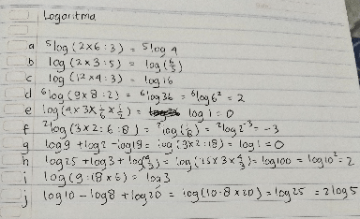 Logaritma
a ⁵log (2×6:3) = ⁵log 4
b log (2×3:5) = log (6/5)
c log (12×4:3) = log 16
d ⁶log (9×8:2) = ⁶log 36 = ⁶log 6² = 2
e log (4×3×1/6×1/2) = log 1 = 0
f ²log (3×2:6:8) = ²log (1/8) = ²log 2⁻³ = -3
g log 9 + log 2 - log 18 = log (9×2:18) = log 1 = 0
h log 25 + log 3 + log (4/3) = log (25×3×4/3) = log 100 = log 10² = 2
i log (9:18×6) = log 3
j log 10 - log 8 + log 20 = log (10:8×20) = log 25 = 2 log 5